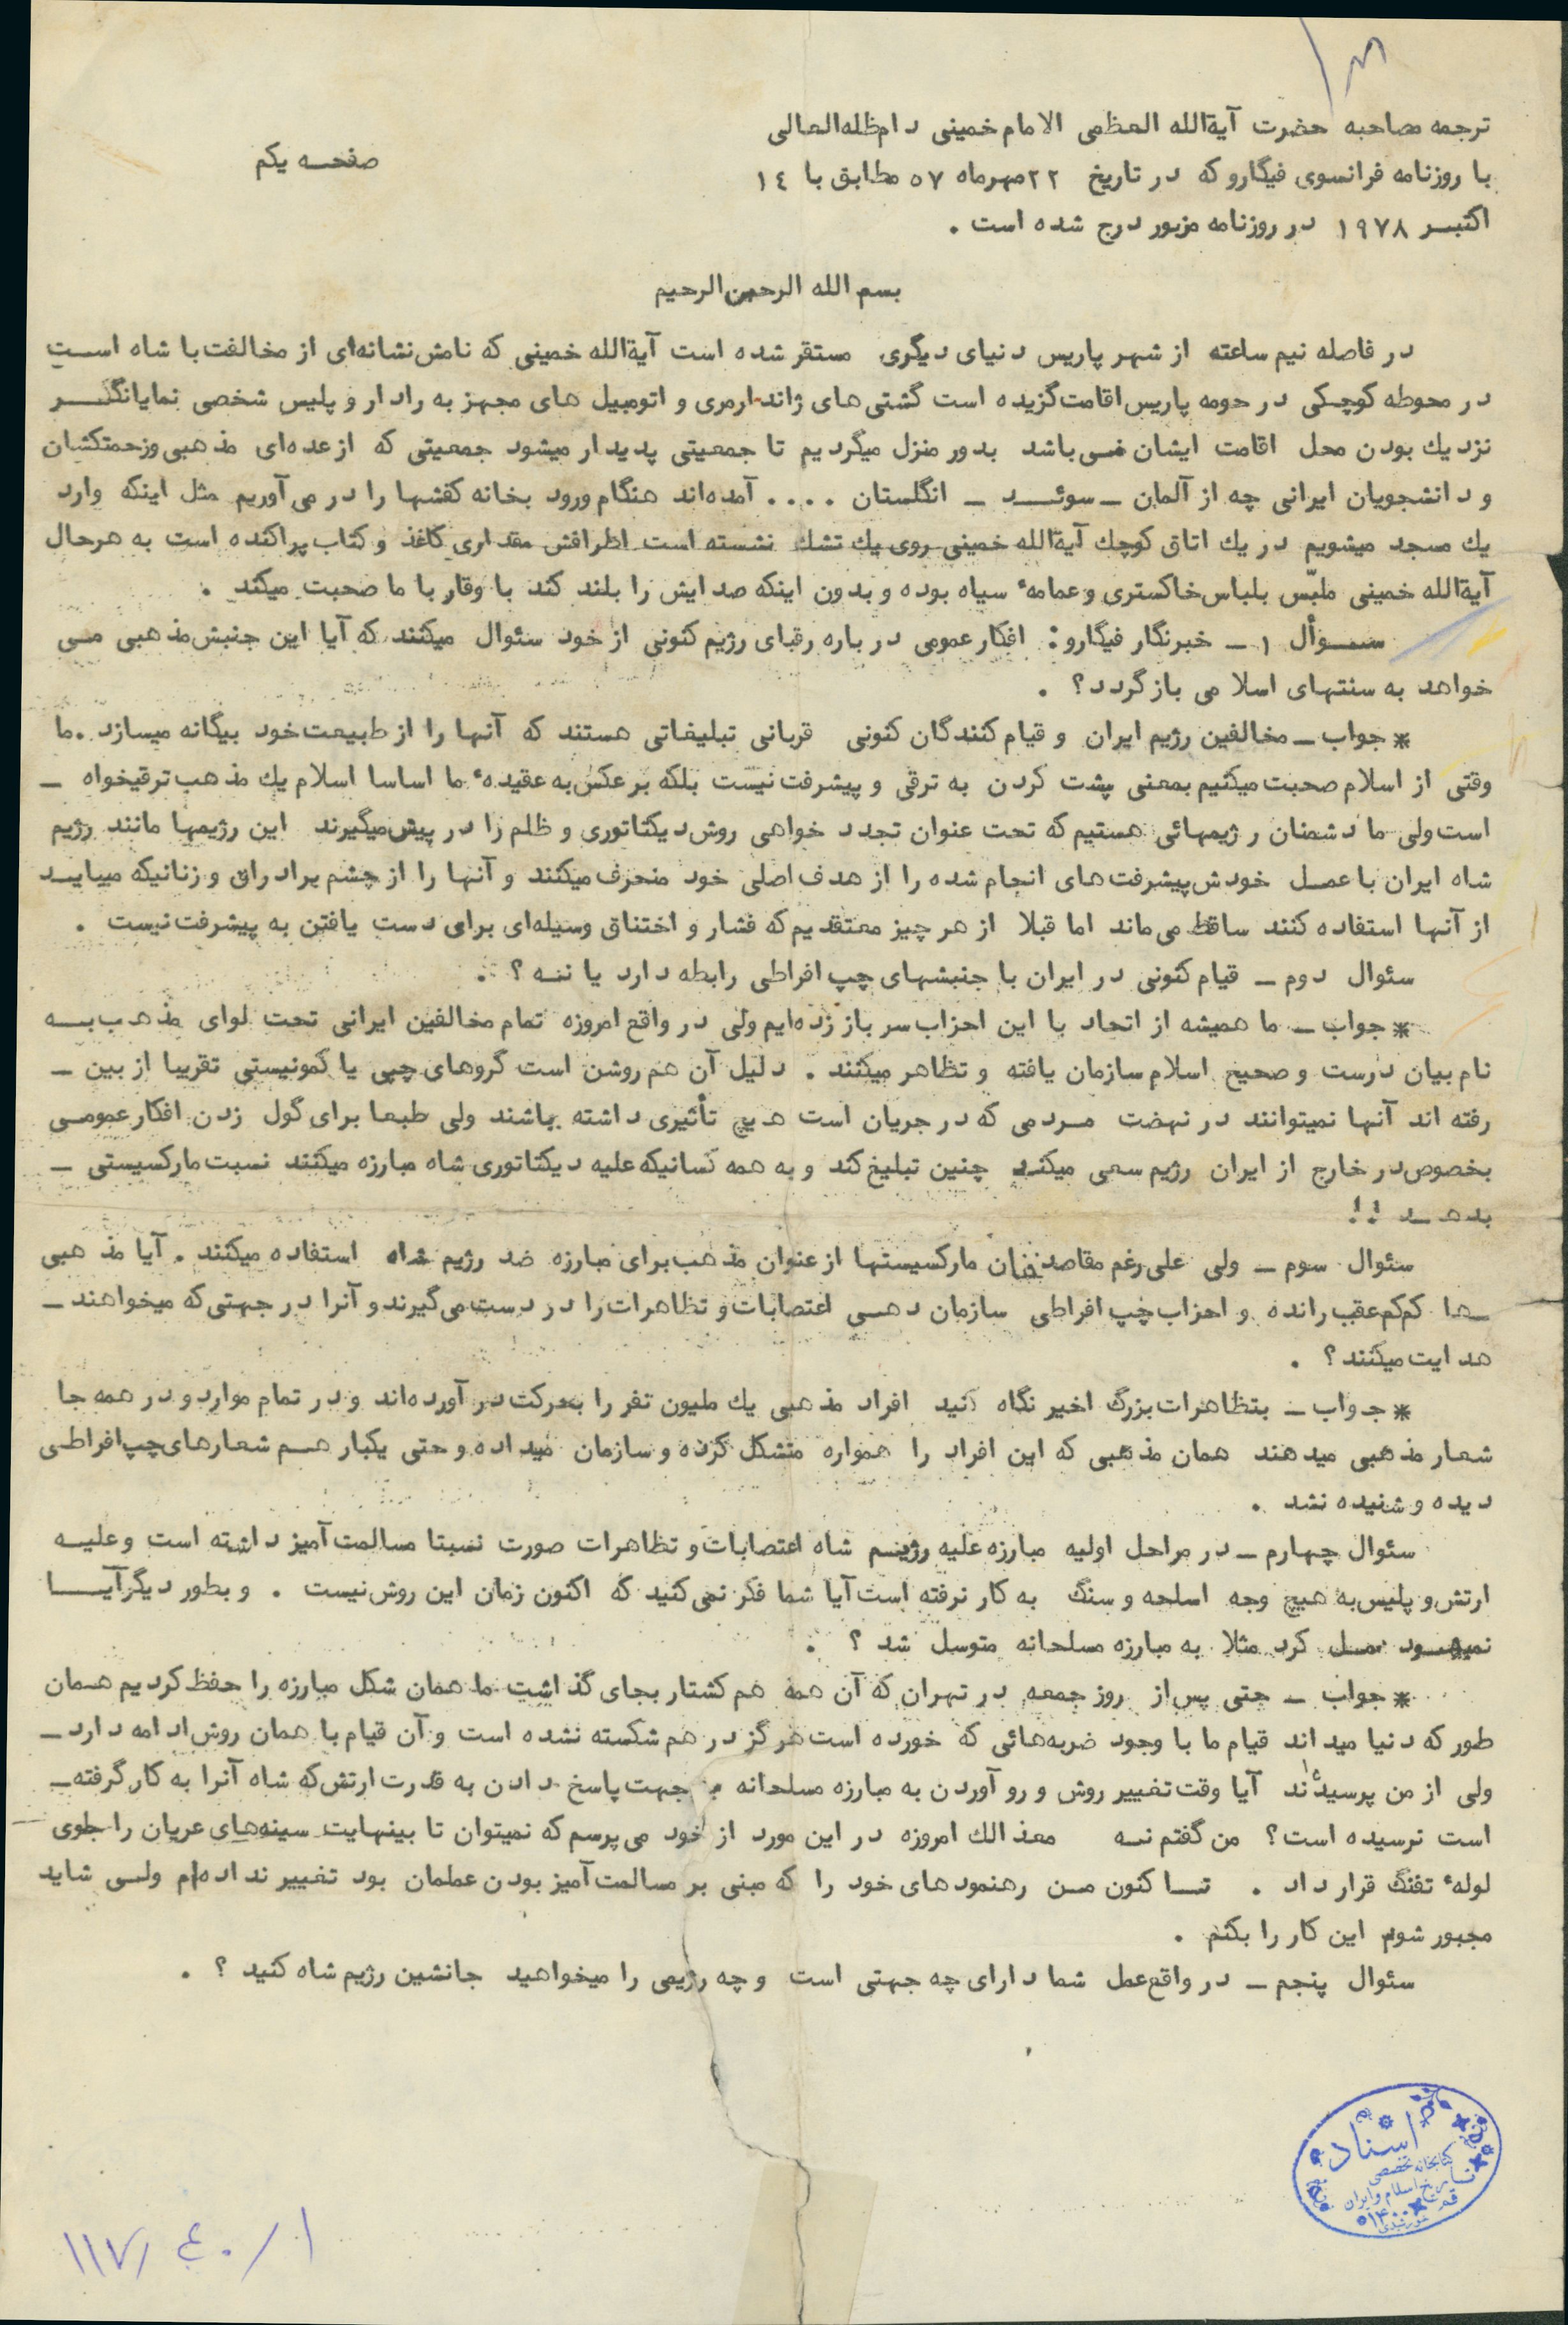 ترجمه مصاحبه حضرت آیةالله العظمی الامام خمینی دام‌ظله‌العالی
صفحـه یکم
با روزنامه فرانسوی فیگارو که در تاریخ ۲۲ مهرماه ۵۷ مطابق با ۱٤
اکتبـر ۱۹۷۸ در روزنامه مزبور درج شده است .
بسم الله الرحمن الرحیم
در فاصله نیم ساعته از شهر پاریس دنیای دیگری مستقر شده است آیةالله خمینی که نامش نشانه‌ای از مخالفت با شاه اسـت
در محوطه کوچکی در حومه پاریس اقامت گزیده است گشتی‌های ژاندارمری و اتومبیل های مجهز به رادار و پلیس شخصی نمایانگـــر
نزدیك بودن محل اقامت ایشان می‌باشد بدور منزل میگردیم تا جمعیتی پدیدار میشود جمعیتی که از عده‌ای مذهبی وزحمتکشان
و دانشجویان ایرانی چه از آلمان ـ سوئـــد ـ انگلستان .... آمده‌اند هنگام ورود بخانه کفشها را در می‌آوریم مثل اینکه وارد
یك مسجد میشویم در یك اتاق کوچك آیةالله خمینی روی یك تشك نشسته است اطرافش مقداری کاغذ و کتاب پراکنده است به هرحال
آیةالله خمینی ملبّس بلباس خاکستری و عمامهٔ سیاه بوده و بدون اینکه صدایش را بلند کند با وقار با ما صحبت میکند .
ســوأل ۱ ـ خبرنگار فیگارو : افکار عمومی در باره رقبای رژیم کنونی از خود سئوال میکنند که آیا این جنبش مذهبی مـی
خواهد به سنتهای اسلامی بازگردد؟ .
* جواب ـ مخالفین رژیم ایران و قیام کنندگان کنونی قربانی تبلیغاتی هستند که آنها را از طبیعت خود بیگانه میسازد .ما
وقتی از اسلام صحبت میکنیم بمعنی پشت کردن به ترقی و پیشرفت نیست بلکه برعکس به عقیدهٔ ما اساسا اسلام یك مذهب ترقیخواه ـ
است ولی ما دشمنان رژیمهائی هستیم که تحت عنوان تجدد خواهی روش دیکتاتوری و ظلم را در پیش میگیرند این رژیمها مانند رژیم
شاه ایران با عمـل خودش پیشرفت های انجام شده را از هدف اصلی خود منحرف میکنند و آنها را از چشم برادران و زنانیکه میبایـد
از آنها استفاده کنند ساقط می‌ماند اما قبلا از هر چیز معتقدیم که فشار و اختناق وسیله‌ای برای دست یافتن به پیشرفت نیست .
سئوال دوم ـ قیام کنونی در ایران با جنبشهای چپ افراطی رابطه دارد یا نـه ؟ .
* جواب ـ ما همیشه از اتحاد با این احزاب سر باز زده‌ایم ولی در واقع امروزه تمام مخالفین ایرانی تحت لوای مذهب بـــه
نام بیان درست و صحیح اسلام سازمان یافته و تظاهر میکنند . دلیل آن هم روشن است گروهای چپی یا کمونیستی تقریبا از بین ـ
رفته اند آنها نمیتوانند در نهضت مـردمی که در جریان است هیچ تأثیری داشته باشند ولی طبعا برای گول زدن افکار عمومـی
بخصوص در خارج از ایران رژیم سعی میکند چنین تبلیغ کند و به همه کسانیکه علیه دیکتاتوری شاه مبارزه میکنند نسبت مارکسیستی ـ
بدهـد !!
سئوال سوم ـ ولی علی رغم مقاصدتان مارکسیستها از عنوان مذهب برای مبارزه ضد رژیم شاه استفاده میکنند . آیا مذهبی
ـها کم‌کم عقب رانده و احزاب چپ افراطی سازمان دهـی اعتصابات و تظاهرات را در دست می‌گیرند و آنرا در جهتی که میخواهند ـ
هدایت میکنند؟ .
* جـواب ـ بتظاهرات بزرگ اخیر نگاه کنید افراد مذهبی یك ملیون نفر را بحرکت در آورده‌اند و در تمام موارد و در همه جا
شعار مذهبی میدهند همان مذهبی که این افراد را همواره متشکل کرده و سازمان میداده و حتی یکبار هـم شعارهای چپ افراطـی
دیده و شنیده نشد .
سئوال چهارم ـ در مراحل اولیه مبارزه علیه رژیـم شاه اعتصابات و تظاهرات صورت نسبتا مسالمت آمیز داشته است و علیــه
ارتش و پلیس به هیچ وجه اسلحه و سنگ به کار نرفته است آیا شما فکر نمی‌کنید که اکنون زمان این روش نیست . و بطور دیگر آیــا
نمیشـود عمـل کرد مثلا به مبارزه مسلحانه متوسل شد ؟ .
* جواب ـ حتی پس از روز جمعه در تهران که آن همه هم کشتار بجای گذاشت ما همان شکل مبارزه را حفظ کردیم همان
طور که دنیا میداند قیام ما با وجود ضربه‌هائی که خورده است هرگز در هم شکسته نشده است و آن قیام با همان روش ادامه دارد ـ
ولی از من پرسیده‌اند آیا وقت تغییر روش و رو آوردن به مبارزه مسلحانه جهت پاسخ دادن به قدرت ارتش که شاه آنرا به کار گرفته ـ
است نرسیده است؟ من گفتم نـه معذالك امروزه در این مورد از خود می‌پرسم که نمیتوان تا بینهایت سینه‌های عریان را جلوی
لولهٔ تفنگ قرار داد . تـا کنون مـن رهنمودهای خود را که مبنی بر مسالمت آمیز بودن عملمان بود تغییر نداده‌ام ولـی شاید
مجبور شوم این کار را بکنم .
سئوال پنجم ـ در واقع عمل شما دارای چه جهتی است و چه رژیمی را میخواهید جانشین رژیم شاه کنید ؟ .
اسناد
کتابخانه تخصصی
تاریخ اسلام و ایران
قم
۱۱۷/ ٤۰/۱